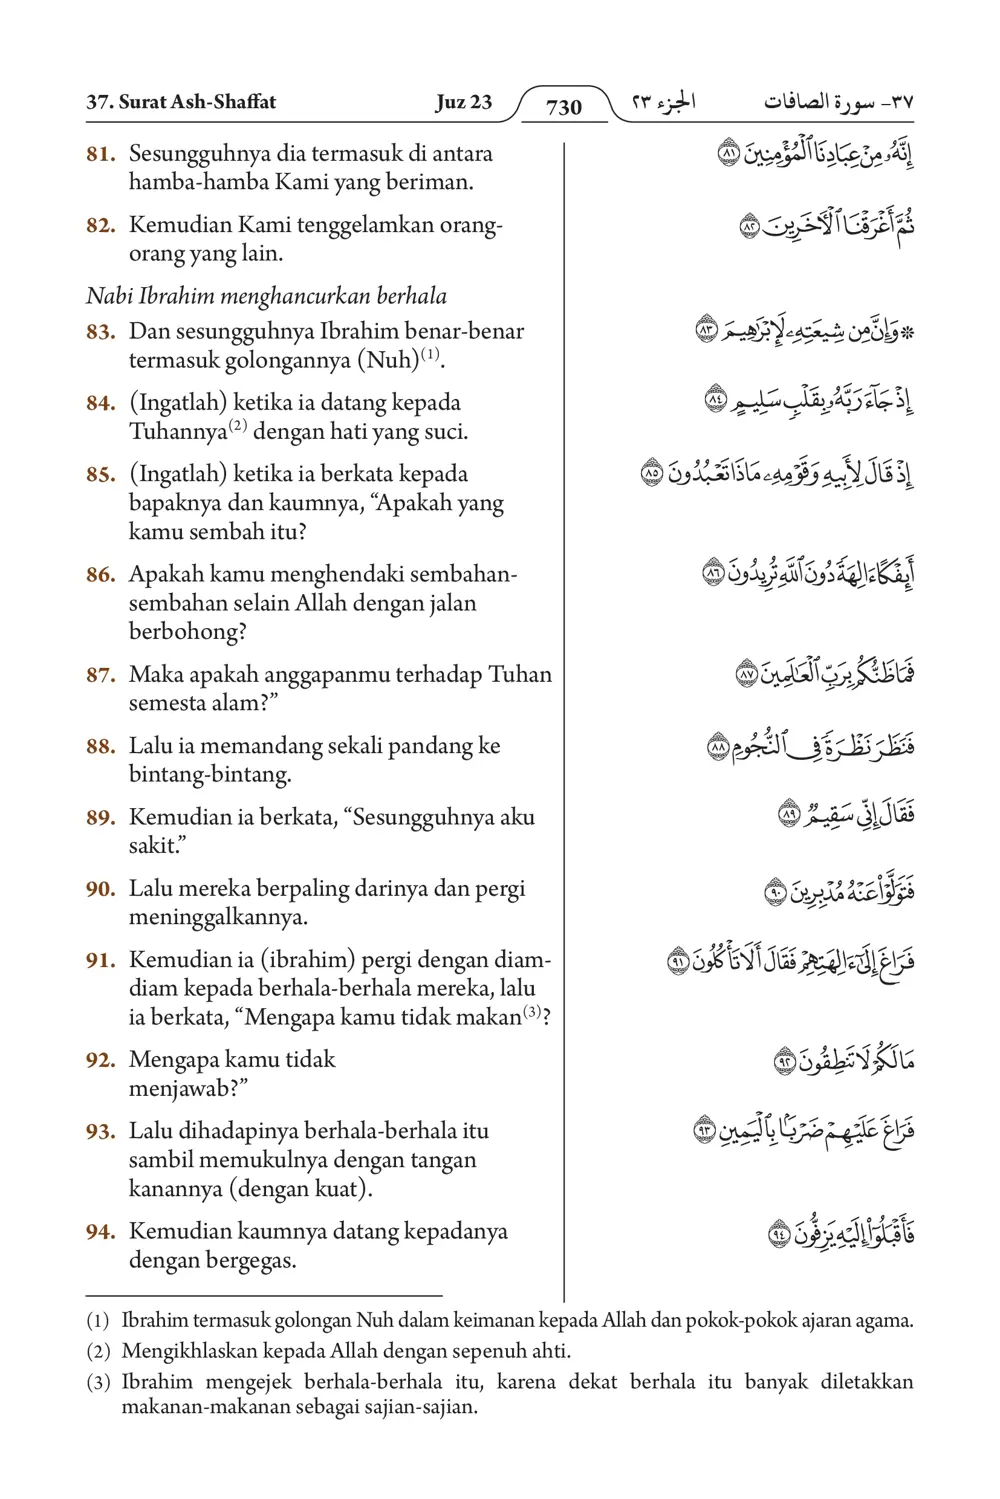 37. Surat Ash-Shaffat Juz 23 730 الجزء ٢٣ ٣٧- سورة الصافات
81. Sesungguhnya dia termasuk di antara
hamba-hamba Kami yang beriman.
إِنَّهُۥ مِنْ عِبَادِنَا ٱلْمُؤْمِنِينَ ٨١
82. Kemudian Kami tenggelamkan orang-
orang yang lain.
ثُمَّ أَغْرَقْنَا ٱلْـَٔاخَرِينَ ٨٢
Nabi Ibrahim menghancurkan berhala
83. Dan sesungguhnya Ibrahim benar-benar
termasuk golongannya (Nuh)(1).
۞ وَإِنَّ مِن شِيعَتِهِۦ لَإِبْرَٰهِيمَ ٨٣
84. (Ingatlah) ketika ia datang kepada
Tuhannya(2) dengan hati yang suci.
إِذْ جَآءَ رَبَّهُۥ بِقَلْبٍ سَلِيمٍ ٨٤
85. (Ingatlah) ketika ia berkata kepada
bapaknya dan kaumnya, “Apakah yang
kamu sembah itu?
إِذْ قَالَ لِأَبِيهِ وَقَوْمِهِۦ مَاذَا تَعْبُدُونَ ٨٥
86. Apakah kamu menghendaki sembahan-
sembahan selain Allah dengan jalan
berbohong?
أَئِفْكًا ءَالِهَةً دُونَ ٱللَّهِ تُرِيدُونَ ٨٦
87. Maka apakah anggapanmu terhadap Tuhan
semesta alam?”
فَمَا ظَنُّكُم بِرَبِّ ٱلْعَٰلَمِينَ ٨٧
88. Lalu ia memandang sekali pandang ke
bintang-bintang.
فَنَظَرَ نَظْرَةً فِى ٱلنُّجُومِ ٨٨
89. Kemudian ia berkata, “Sesungguhnya aku
sakit.”
فَقَالَ إِنِّى سَقِيمٌ ٨٩
90. Lalu mereka berpaling darinya dan pergi
meninggalkannya.
فَتَوَلَّوْا۟ عَنْهُ مُدْبِرِينَ ٩٠
91. Kemudian ia (ibrahim) pergi dengan diam-
diam kepada berhala-berhala mereka, lalu
ia berkata, “Mengapa kamu tidak makan(3)?
فَرَاغَ إِلَىٰٓ ءَالِهَتِهِمْ فَقَالَ أَلَا تَأْكُلُونَ ٩١
92. Mengapa kamu tidak
menjawab?”
مَا لَكُمْ لَا تَنطِقُونَ ٩٢
93. Lalu dihadapinya berhala-berhala itu
sambil memukulnya dengan tangan
kanannya (dengan kuat).
فَرَاغَ عَلَيْهِمْ ضَرْبًۢا بِٱلْيَمِينِ ٩٣
94. Kemudian kaumnya datang kepadanya
dengan bergegas.
فَأَقْبَلُوٓا۟ إِلَيْهِ يَزِفُّونَ ٩٤
(1) Ibrahim termasuk golongan Nuh dalam keimanan kepada Allah dan pokok-pokok ajaran agama.
(2) Mengikhlaskan kepada Allah dengan sepenuh ahti.
(3) Ibrahim mengejek berhala-berhala itu, karena dekat berhala itu banyak diletakkan
makanan-makanan sebagai sajian-sajian.